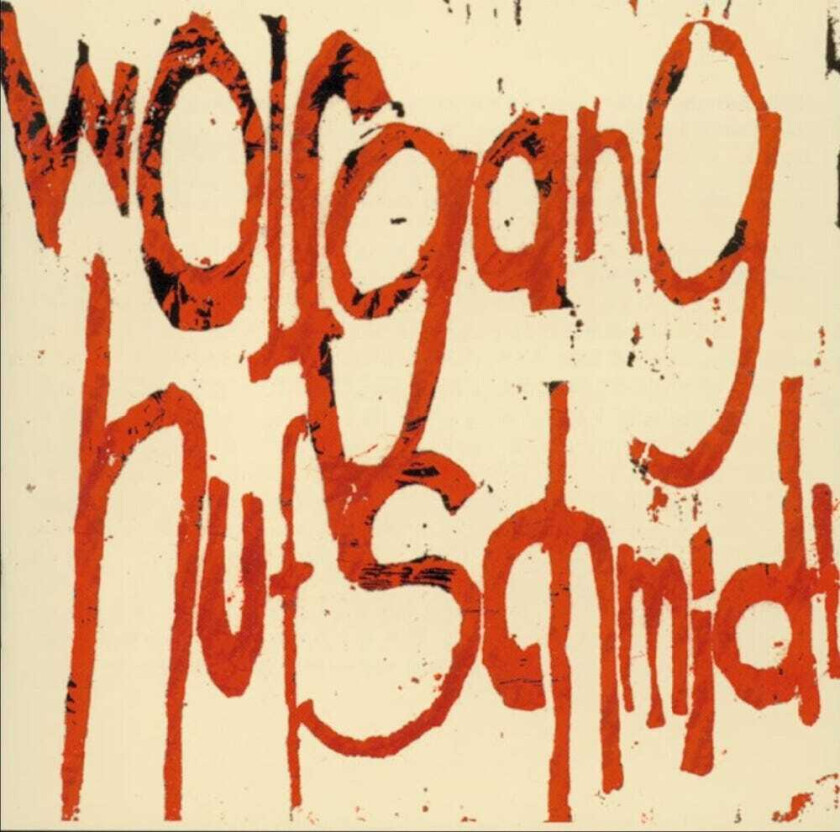 wolfgang
hufschmidt